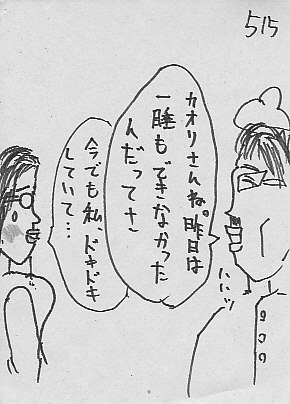 515
カオリさんね。昨日は
一睡もできなかった
んだってさ〜
ニヤッ
今でも私、ドキドキ
していて…